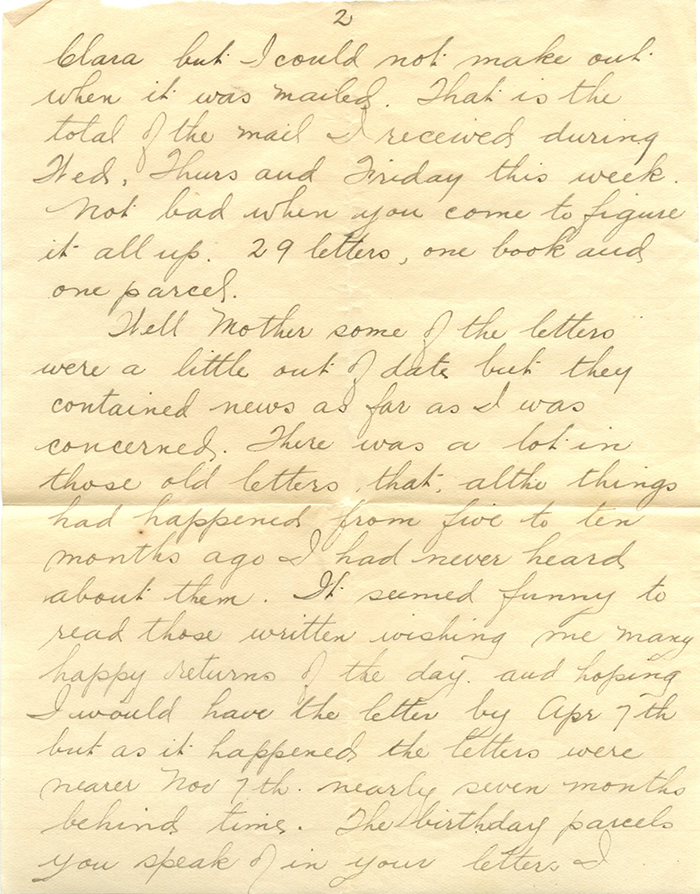 2
Clara but I could not make out
when it was mailed. That is the
total of the mail I received during
Wed, Thurs and Friday this week.
Not bad when you come to figure
it all up. 29 letters, one book and
one parcel.
Well Mother some of the letters
were a little out of date but they
contained news as far as I was
concerned. There was a lot in
those old letters that, altho things
had happened from five to ten
months ago I had never heard
about them. It seemed funny to
read those written wishing me many
happy returns of the day. and hoping
I would have the letter by Apr 7th
but as it happened the letters were
nearer Nov 7th. nearly seven months
behind time. The birthday parcels
you speak of in your letters I